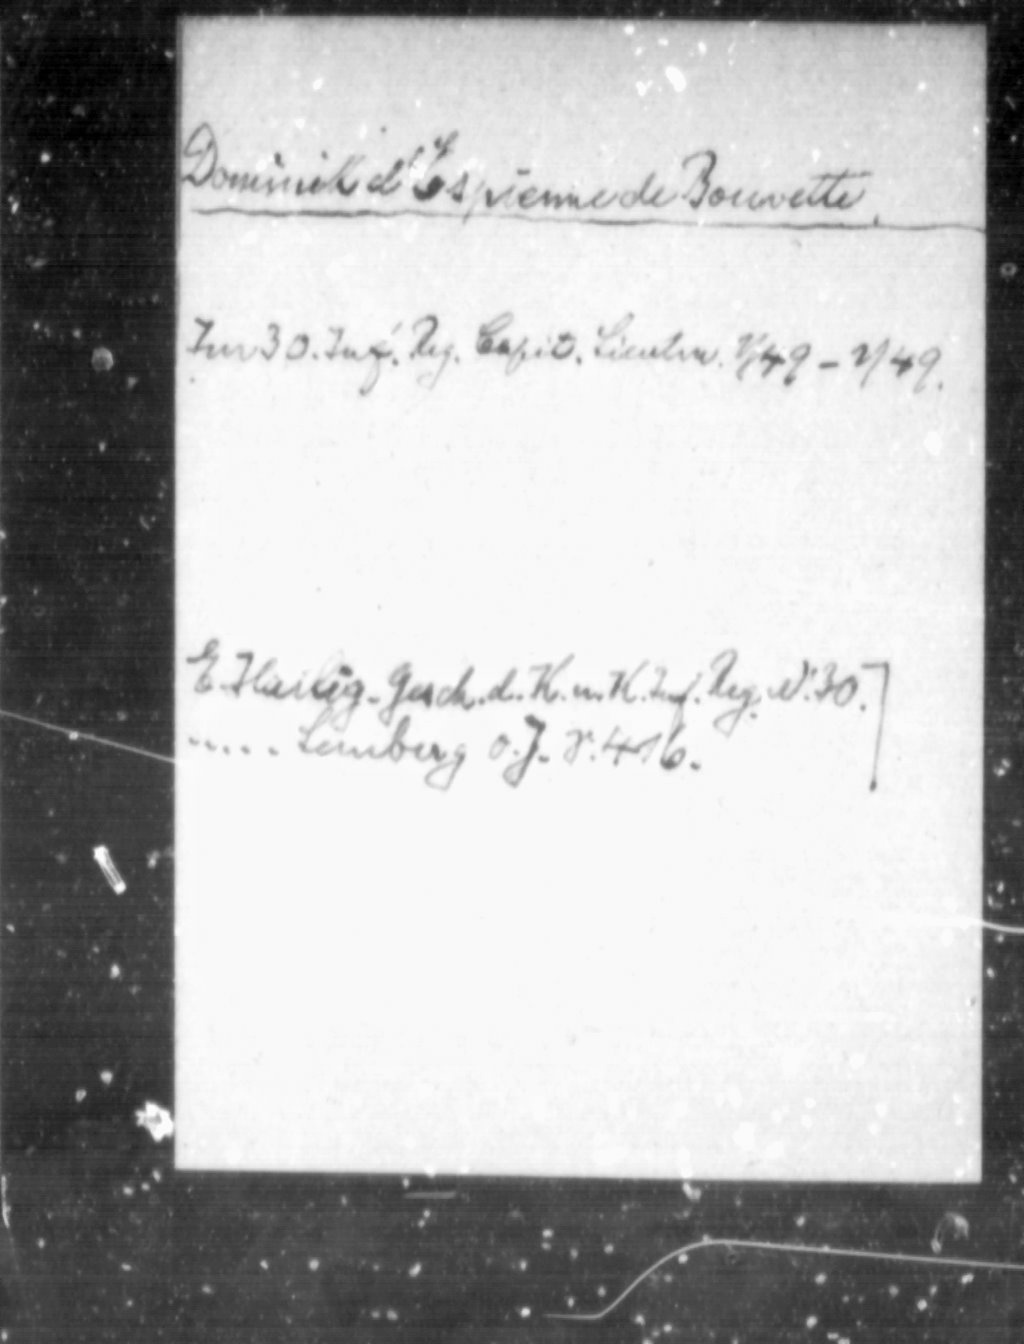 Dominik d'Espienne de Bouvette.
Im 30. Inf. Reg. Capit. Lieutn. 1/49 - 1/49.
E. Hailig - Gesch. d. K. u. K. Inf. Reg. N. 30.
..... Lemberg o. J. S. 416.